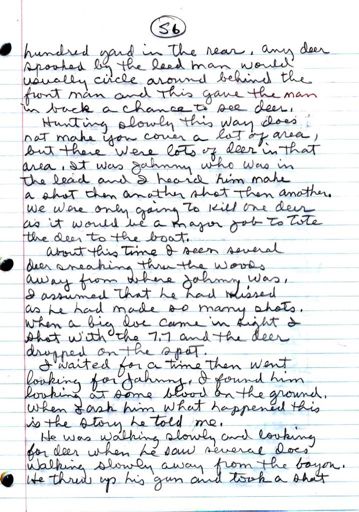 56
hundred yard in the rear. any deer
spooked by the lead man would
usually circle around behind the
front man and this gave the man
in back a chance to see deer.
Hunting slowly this way does
not make you cover a lot of area,
but there were lots of deer in that
area. It was Johnny who was in
the lead and I heard him make
a shot then another shot then another.
we were only going to kill one deer
as it would be a major job to tote
the deer to the boat.
About this time I seen several
deer sneaking thru the woods
away from where Johnny was.
I assumed that he had missed
as he had made so many shots.
when a big doe came in sight I
shot with the 7.7 and the deer
dropped on the spot.
I waited for a time then went
looking for Johnny. I found him
looking at some blood on the ground.
When I ask him what happened this
is the story he told me.
He was walking slowly and looking
for deer when he saw several does
walking slowly away from the bayou.
He threw up his gun and took a shot